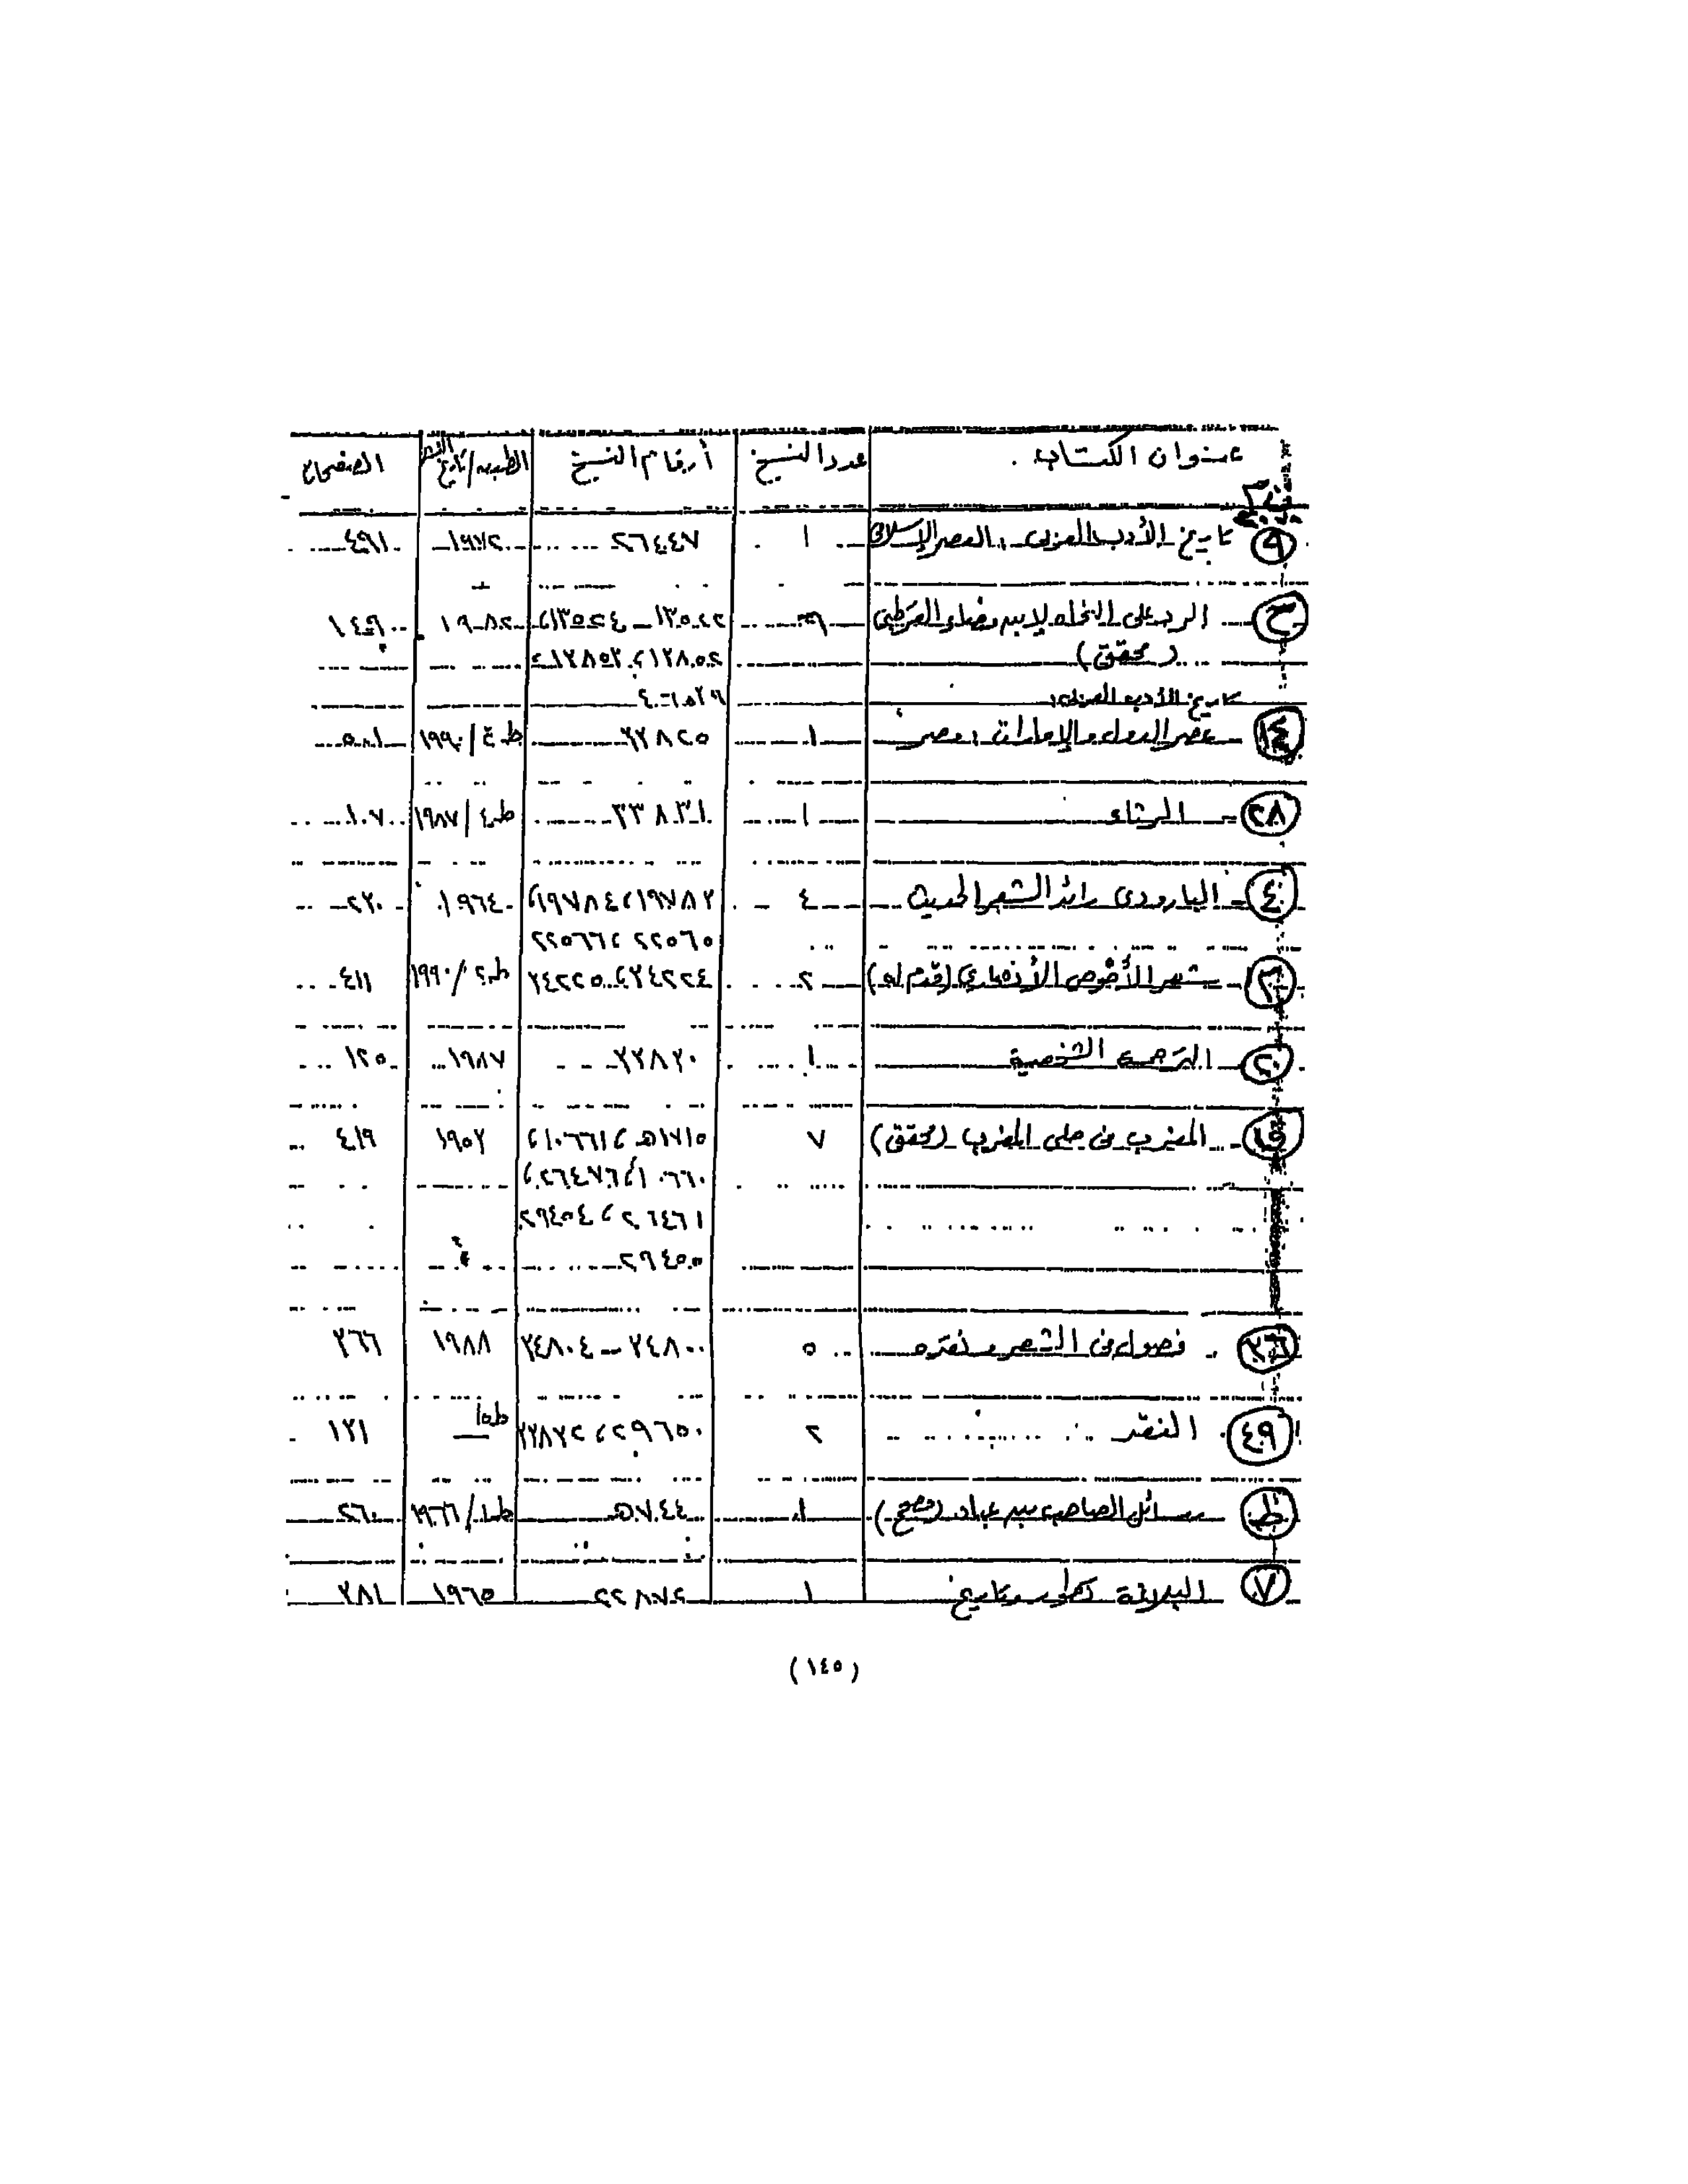 عنوان الكتاب عدد النسخ أرقام النسخ الطبعة/تاريخ النشر الصفحات
٩ تاريخ الأدب العربى: العصر الإسلامى ١ ٢٦٤٤٧ ١٩٧٢ ٤٩١
ح الرد على النحاه لابن مضاء القرطبى ١٩٨٢
(محقق)
تاريخ الأدب العربى:
١٤ عصر الدول والإمارات: مصر ١ ٢٢٨٢٥ ط٤/١٩٩٠ ٥٠١
٢٨ الرثاء ١ ٣٣٨٣١ ط٤/١٩٨٧ ١٠٧
٤ البارودى رائد الشعر الحديث ٤ ١٩٧٨٢، ١٩٧٨٤، ١٩٦٤ ٢٢٠
٢٢٥٦٥، ٢٢٥٦٦
٣ شعر الأحوص الأنصارى (قدم له) ٢ ٢٤٢٢٤، ٢٤٢٢٥ ط٢/١٩٩٠ ٤١١
٢٠ الترجمة الشخصية ١ ٢٢٨٢٠ ١٩٨٧ ١٢٥
المغرب فى حلى المغرب (محقق) ٧ ٥١٧١٥، ١٠٦٦١، ١٩٥٢ ٤١٩
١٠٦٦٠، ٢٦٤٧٦،
٢٦٤٦١، ٢٩٤٥٤
٢٩٤٥٥
٢٣ فصول فى الشعر ونقده ٥ ٢٤٨٠٠ – ٢٤٨٠٤ ١٩٨٨ ٢٦٦
٤٩ النقد ٢ ٢٩٦٥٠، ٢٢٨٢٢ ١٢١
ط رسائل الصاحب بن عباد (مصحح) ١ ٥٧٠٤٤ ط١/١٩٦٦ ٢٦٠
٧ البلاغة تطور وتاريخ ١ ٢٢٨٧٢ ١٩٦٥ ٢٨١
(١٤٥)